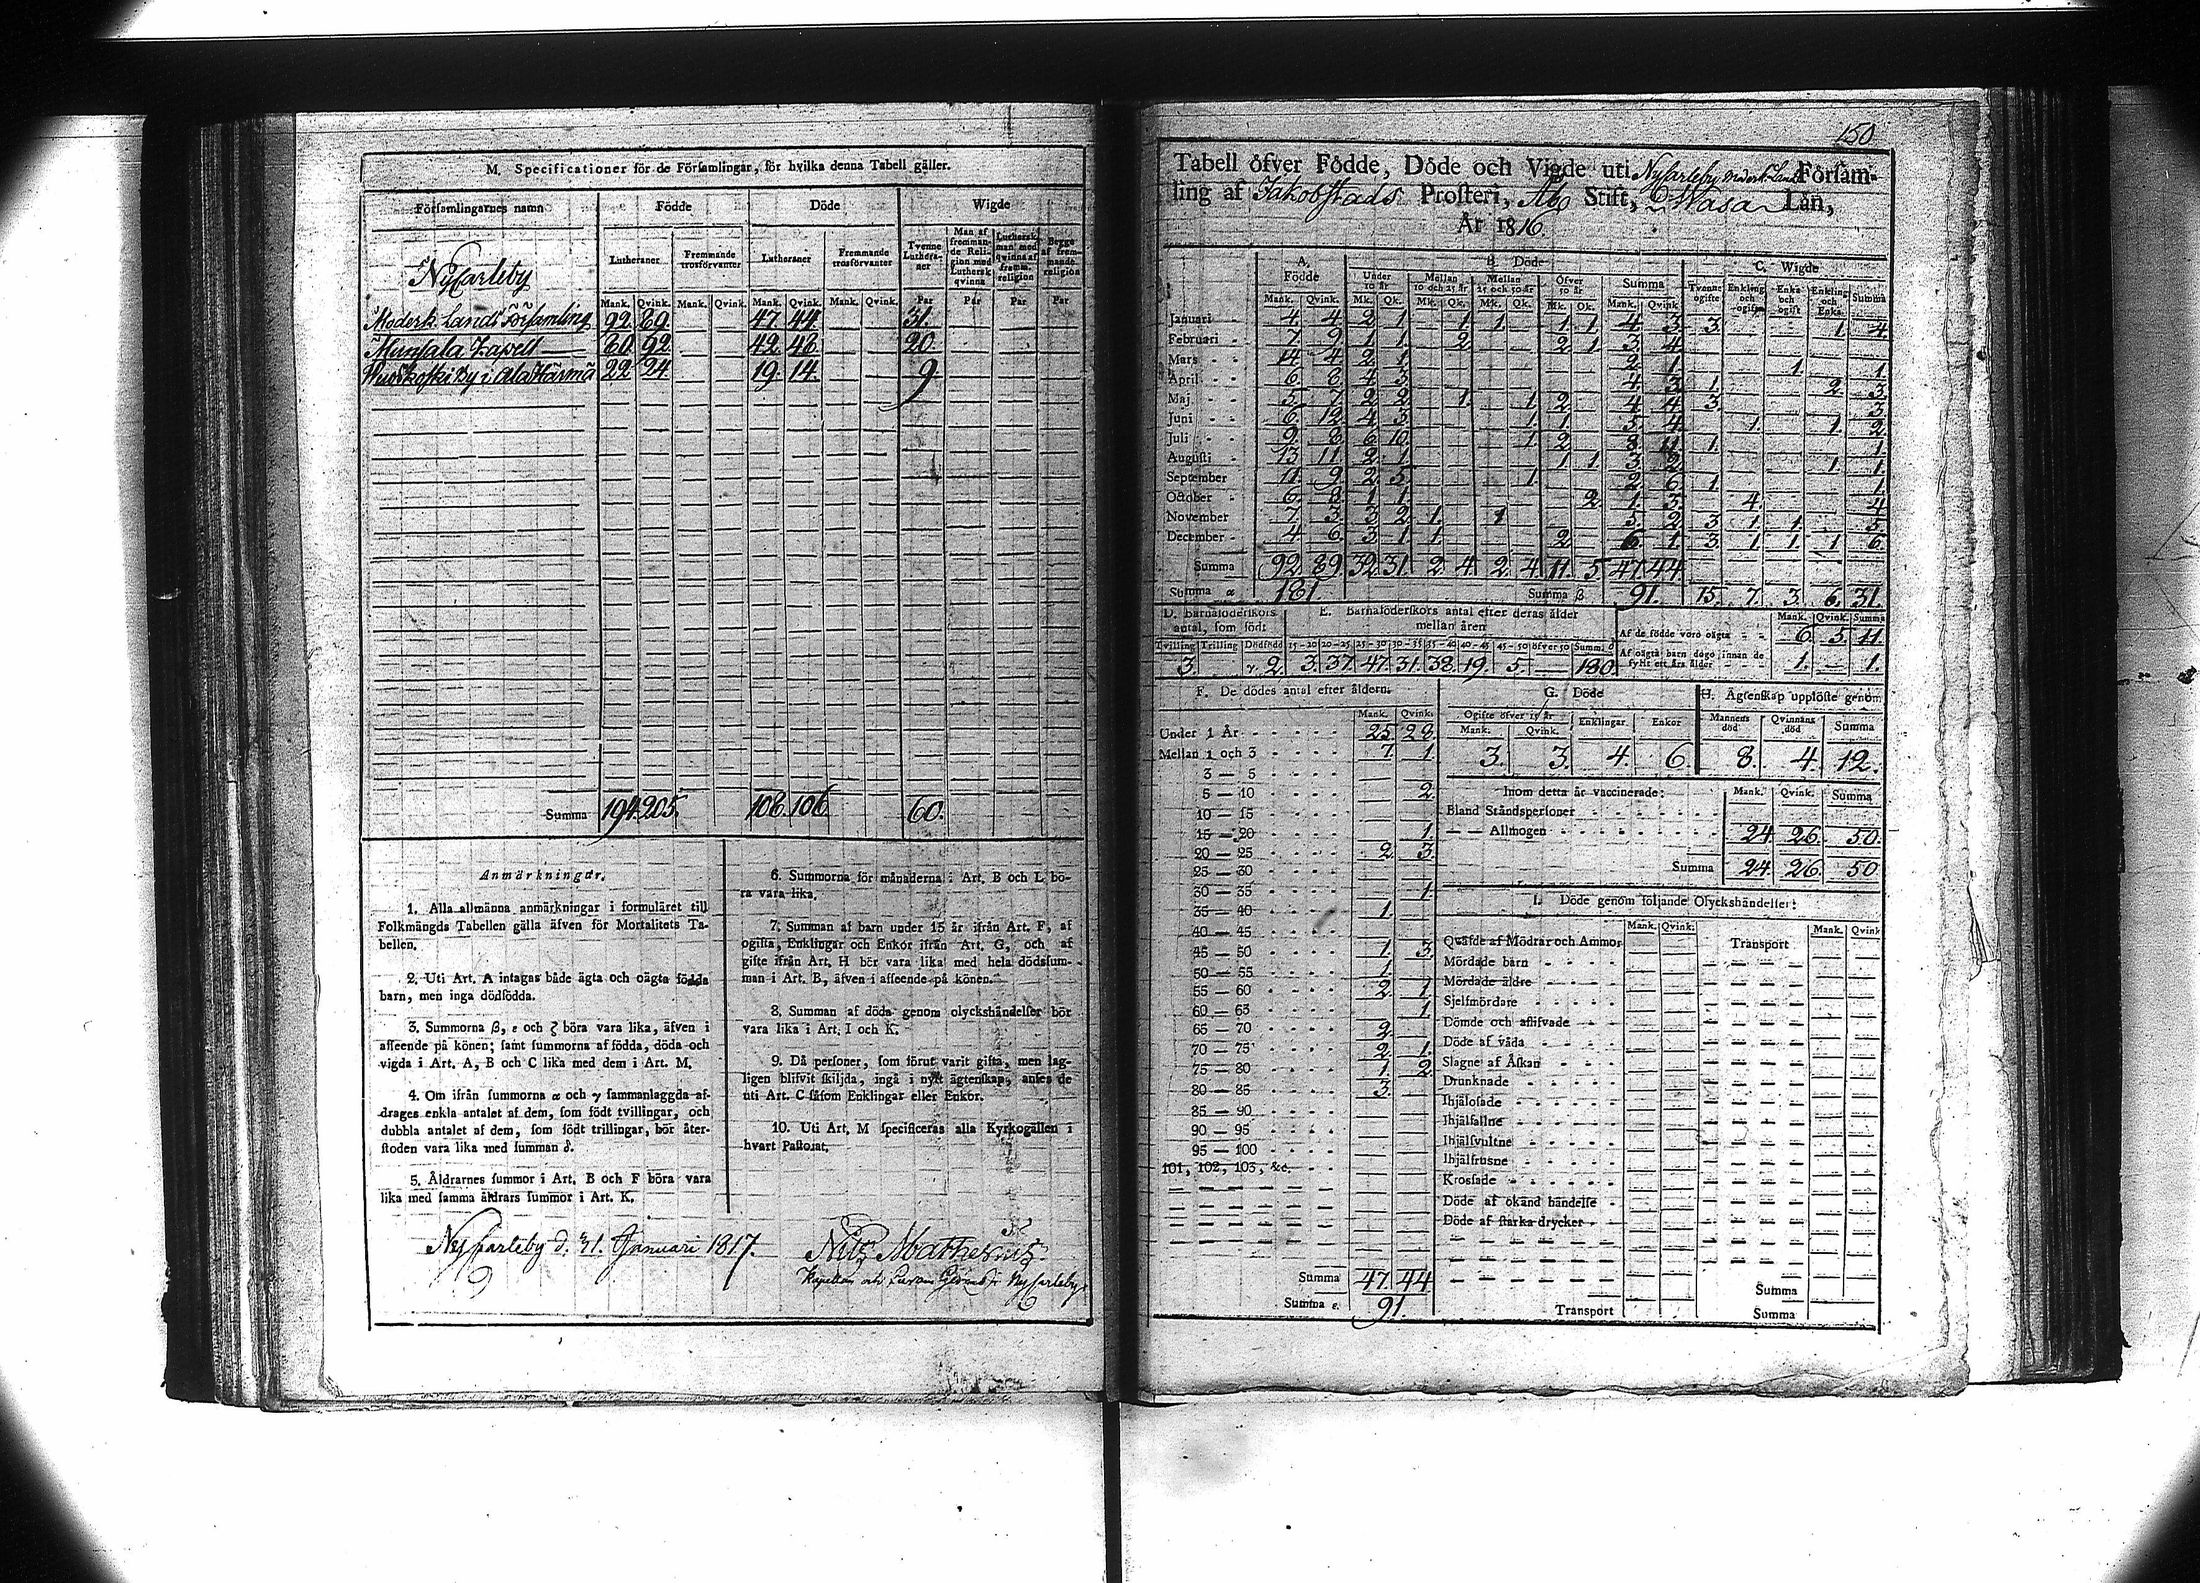 M. Specificationer för de Församlingar, för hvilka denna Tabell gäller.
Församlingarnes namn Födde Döde Wigde
Lutheraner Fremmande trosförvanter Lutheraner Fremmande trosförvanter Tvenne Lutheraner Man af fremmande Religion med Luthersk qvinna Luthersk man med qvinna af fremm. religion Begge af fremmande religion
NyCarleby
Mank. Qvink. Mank. Qvink. Mank. Qvink. Mank. Qvink. Par Pår Par Par
Moderk. Lands Församling 92 89 47 44 31.
Munsala Capell 80 92 42 48 20.
By i Alahärmä 22 24 19. 14. 9.
Summa 194. 205. 108. 106. 60.
Anmärkningar.
1. Alla allmänna anmärkningar i formuläret till
Folkmängds Tabellen gälla äfven för Mortalitets Ta-
bellen.
2. Uti Art. A intagas både ägta och oägta födda
barn, men inga dödfödda.
3. Summorna β, ε och ζ böra vara lika, äfven i
afseende på könen; samt summorna af födda, döda och
vigda i Art. A, B och C lika med dem i Art. M.
4. Om ifrån summorna α och γ sammanlaggda af-
drages enkla antalet af dem, som födt tvillingar, och
dubbla antalet af dem, som födt trillingar, bör åter-
stoden vara lika med summan δ.
5. Åldrarnes summor i Art. B och F böra vara
lika med samma åldrars summor i Art. K.
6. Summorna för månaderna i Art. B och L bö-
ra vara lika.
7. Summan af barn under 15 år ifrån Art. F, af
ogifta, Enklingar och Enkor ifrån Art. G, och af
gifte ifrån Art. H bör vara lika med hela dödssum-
man i Art. B, äfven i afseende på könen.
8. Summan af döda genom olyckshändelser bör
vara lika i Art. I och K.
9. Då personer, som förut varit gifta, men lag-
ligen blifvit skiljda, ingå i nytt ägtenskap, anses de
uti Art. C såsom Enklingar eller Enkor.
10. Uti Art. M specificeras alla Kyrkogällen i
hvart Pastorat.
NyCarleby d. 31. Januari 1817.
Nils Mathesius
150
Tabell öfver Födde, Döde och Vigde uti NyCarleby Moderk. Lands Försam-
ling af Jakobstads Prosteri, Åbo Stift, Wasa Län,
År 1816
A. Födde B. Döde C. Wigde
Under 10 år Mellan 10 och 25 år Mellan 25 och 50 år Öfver 50 år Summa Tvenne ogifte Enkling och ogift Enka och ogift Enkling och Enka Summa
Mank. Qvink. Mk. Qk. Mk. Qk. Mk. Qk. Mk. Qk. Mank. Qvink.
Januari 4 4 2 1 1 1 1 1 4 3 3 1. 4.
Februari 7 9 1 1 2 2 1 3 4
Mars 14 4 2 1 2 1 1 1.
April 6 8 4 3 4 3 1 2 3.
Maj 5 7 2 2 1 1 2 4 4 3 3.
Juni 6 12 4 3 1 1 5 4 1 1 2.
Juli 9 8 6 10 1 2 8 11 1 1.
Augusti 13 11 2 1 1 1 3 2 1 1.
September 11 9 2 5 1 2 6 1 1.
October 6 8 1 1 2 1 3 4 4
November 7 3 3 2 1 1 5 2 3 1 1 5.
December 4 6 3 1 1 2 6 1 3 1 1 1 6.
Summa 92. 89 32 31. 2 4. 2. 4. 11. 5 47. 44.
Summa α 181. Summa β 91. 15. 7. 3. 6. 31.
D. Barnaföderskors antal, som födt
Tvilling Trilling Dödfödd
3. γ 2.
E. Barnaföderskors antal efter deras ålder mellan åren
15-20 20-25 25-30 30-35 35-40 40-45 45-50 öfver 50 Summ. δ
3. 37. 47. 31. 38. 19. 5. — 180.
Mank. Qvink. Summa
Af de födde voro oägta 6. 5. 11.
Af oägta barn dogo innan de fyllt ett års ålder 1. — 1.
F. De dödes antal efter åldern.
Mank. Qvink.
Under 1 År 25 28
Mellan 1 och 3 7. 1.
3 — 5
5 — 10 2.
10 — 15
15 — 20 1.
20 — 25 2. 3.
25 — 30
30 — 35 1.
35 — 40 1.
40 — 45
45 — 50 1. 3.
50 — 55 1.
55 — 60 2. 1
60 — 65 1.
65 — 70 2.
70 — 75 2. 1.
75 — 80 1. 2.
80 — 85 3.
85 — 90
90 — 95
95 — 100
101, 102, 103, &c.
Summa 47 44
Summa ε. 91.
G. Döde
Ogifte öfver 15 år Enklingar Enkor
Mank. Qvink.
3. 3. 4. 6.
H. Ägtenskap upplöste genom
Mannens död Qvinnans död Summa
8. 4. 12.
Inom detta år vaccinerade: Mank. Qvink. Summa
Bland Ståndspersoner
— — Allmogen 24. 26. 50.
Summa 24. 26. 50
I. Döde genom följande Olyckshändelser:
Mank. Qvink. Mank. Qvink
Qväfde af Mödrar och Ammor Transport
Mördade barn
Mördade äldre
Sjelfmördare
Dömde och aflifvade
Döde af våda
Slagne af Åskan
Drunknade
Ihjälosade
Ihjälfallne
Ihjälsvultne
Ihjälfrusne
Krossade
Döde af okänd händelse
Döde af starka drycker
Summa
Transport Summa